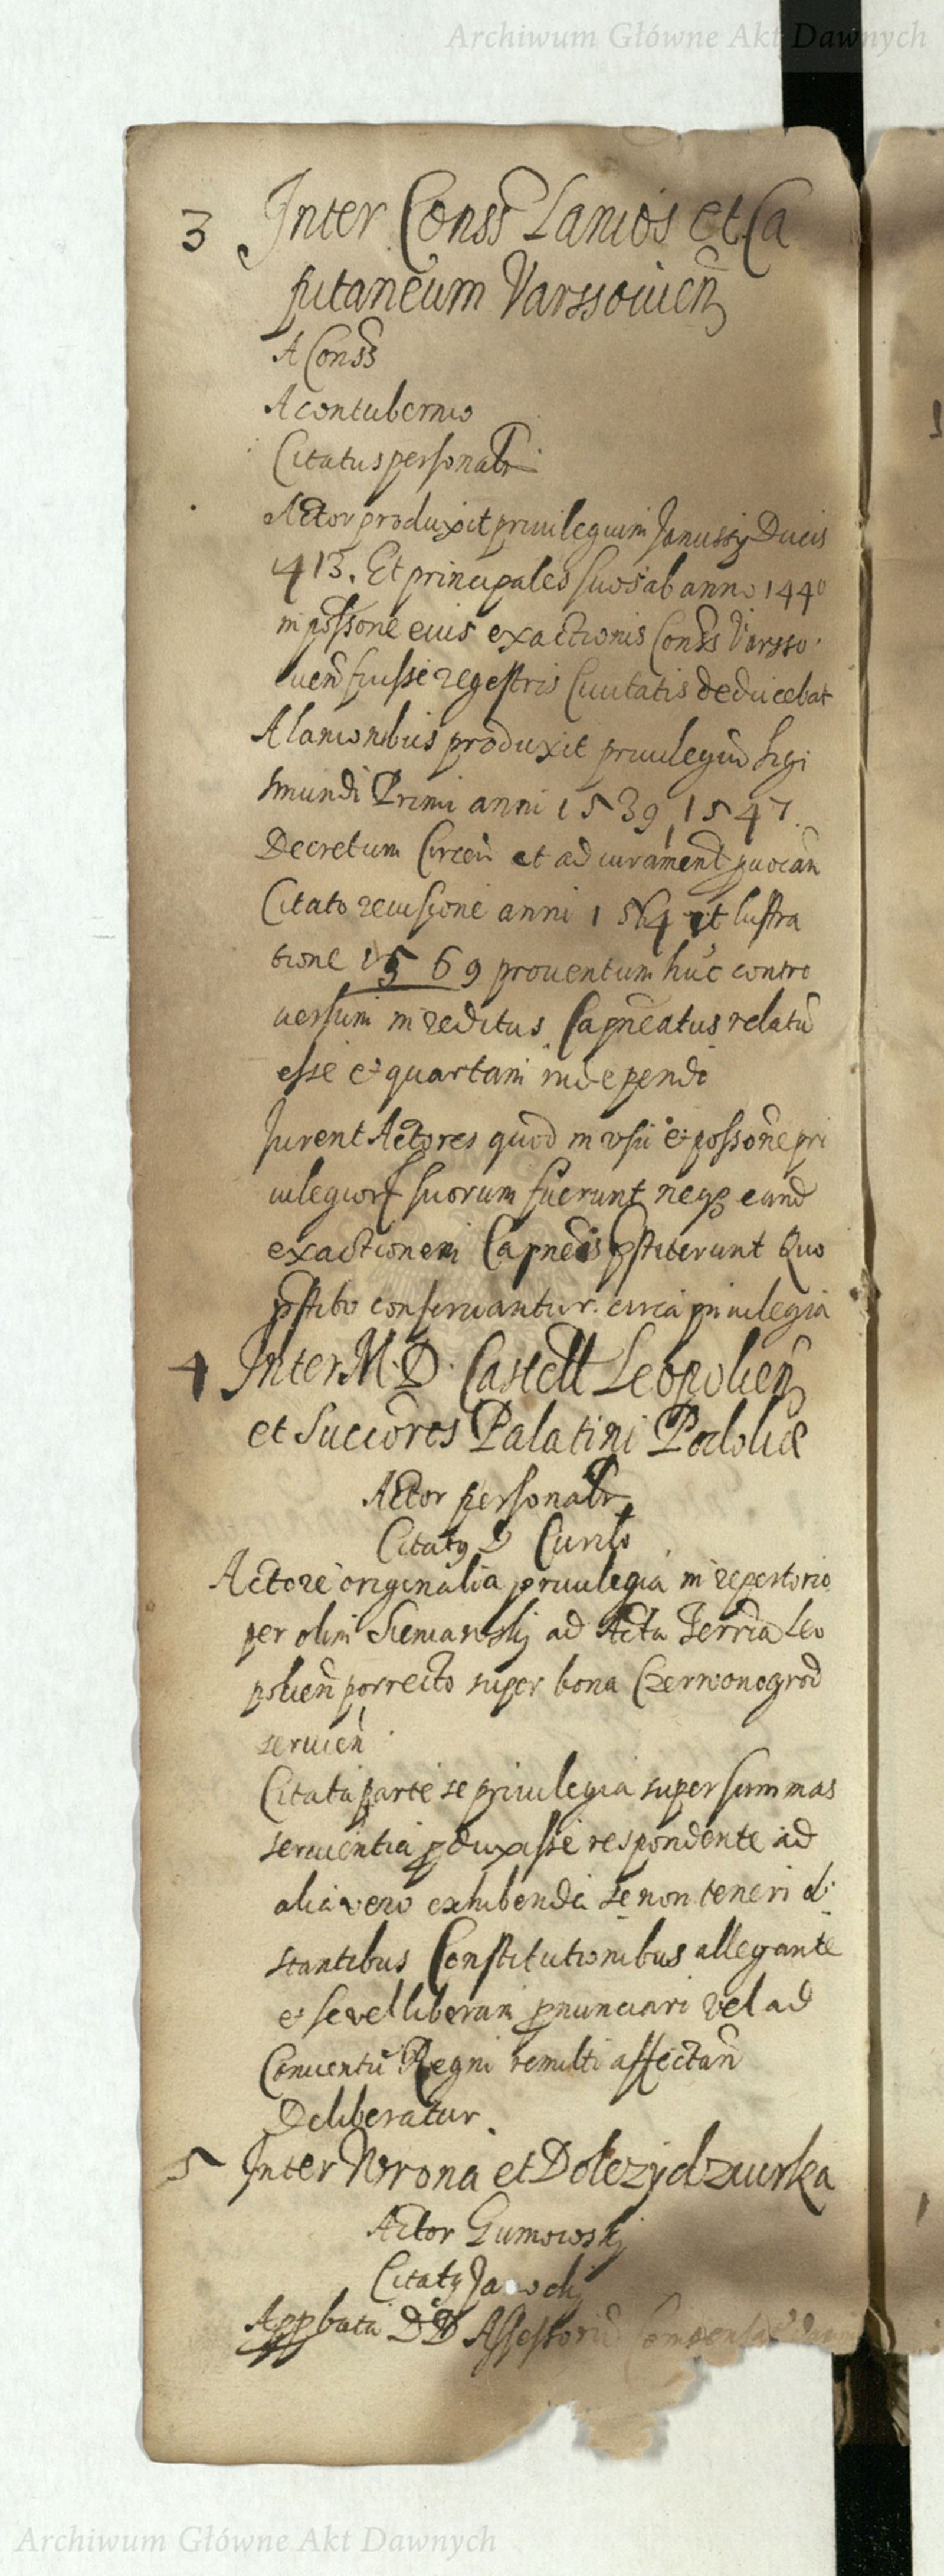 Archiwum Główne Akt Dawnych
3 Inter Conss Lanios et Ca
pitaneum Varssouien
A Conss
A contubernio
Citatus personalr
Actor produxit priuilegium Janussij Ducis
1413. Et principales suos ab anno 1440
in possone eius exactionis Conss Varsso
uien fuisse regestris Ciuitatis deducebat
A lanionibus produxit priuilegiu Sigi
smundi Primi anni 1539, 1547.
Decretum et ad iurament
Citato reuisione anni 1564 et lustra
tione 1569 prouentum huc contro
uersum in reditus Capneatus relatu
esse et quartam inde pendi
Jurent Actores quod in usu et possone pri
uilegior suorum fuerunt neq eand
exactionem Capneis pstiterunt Quo
pstito conseruantur circa priuilegia
4 Inter M. D. Castell Leopolien
et Succores Palatini Podoliæ
Actor personalr
Citaty D Curilo
Actore originalia priuilegia in repertorio
per olim Sieniawskij ad Acta Terria Leo
polien porrecto super bona Czerwonogrod
seruien
Citata parte se priuilegia super summas
seruientia pduxisse respondente ad
alia vero exhibenda se non teneri ob
stantibus Constitutionibus allegante
et se vel liberam pnunciari vel ad
Conuentu Regni remitti affectan
Deliberatur.
5 Inter Wrona et Dolezydzwirka
Actor Gumowskj
Citaty
Appbata DD Assessoriu
Archiwum Główne Akt Dawnych